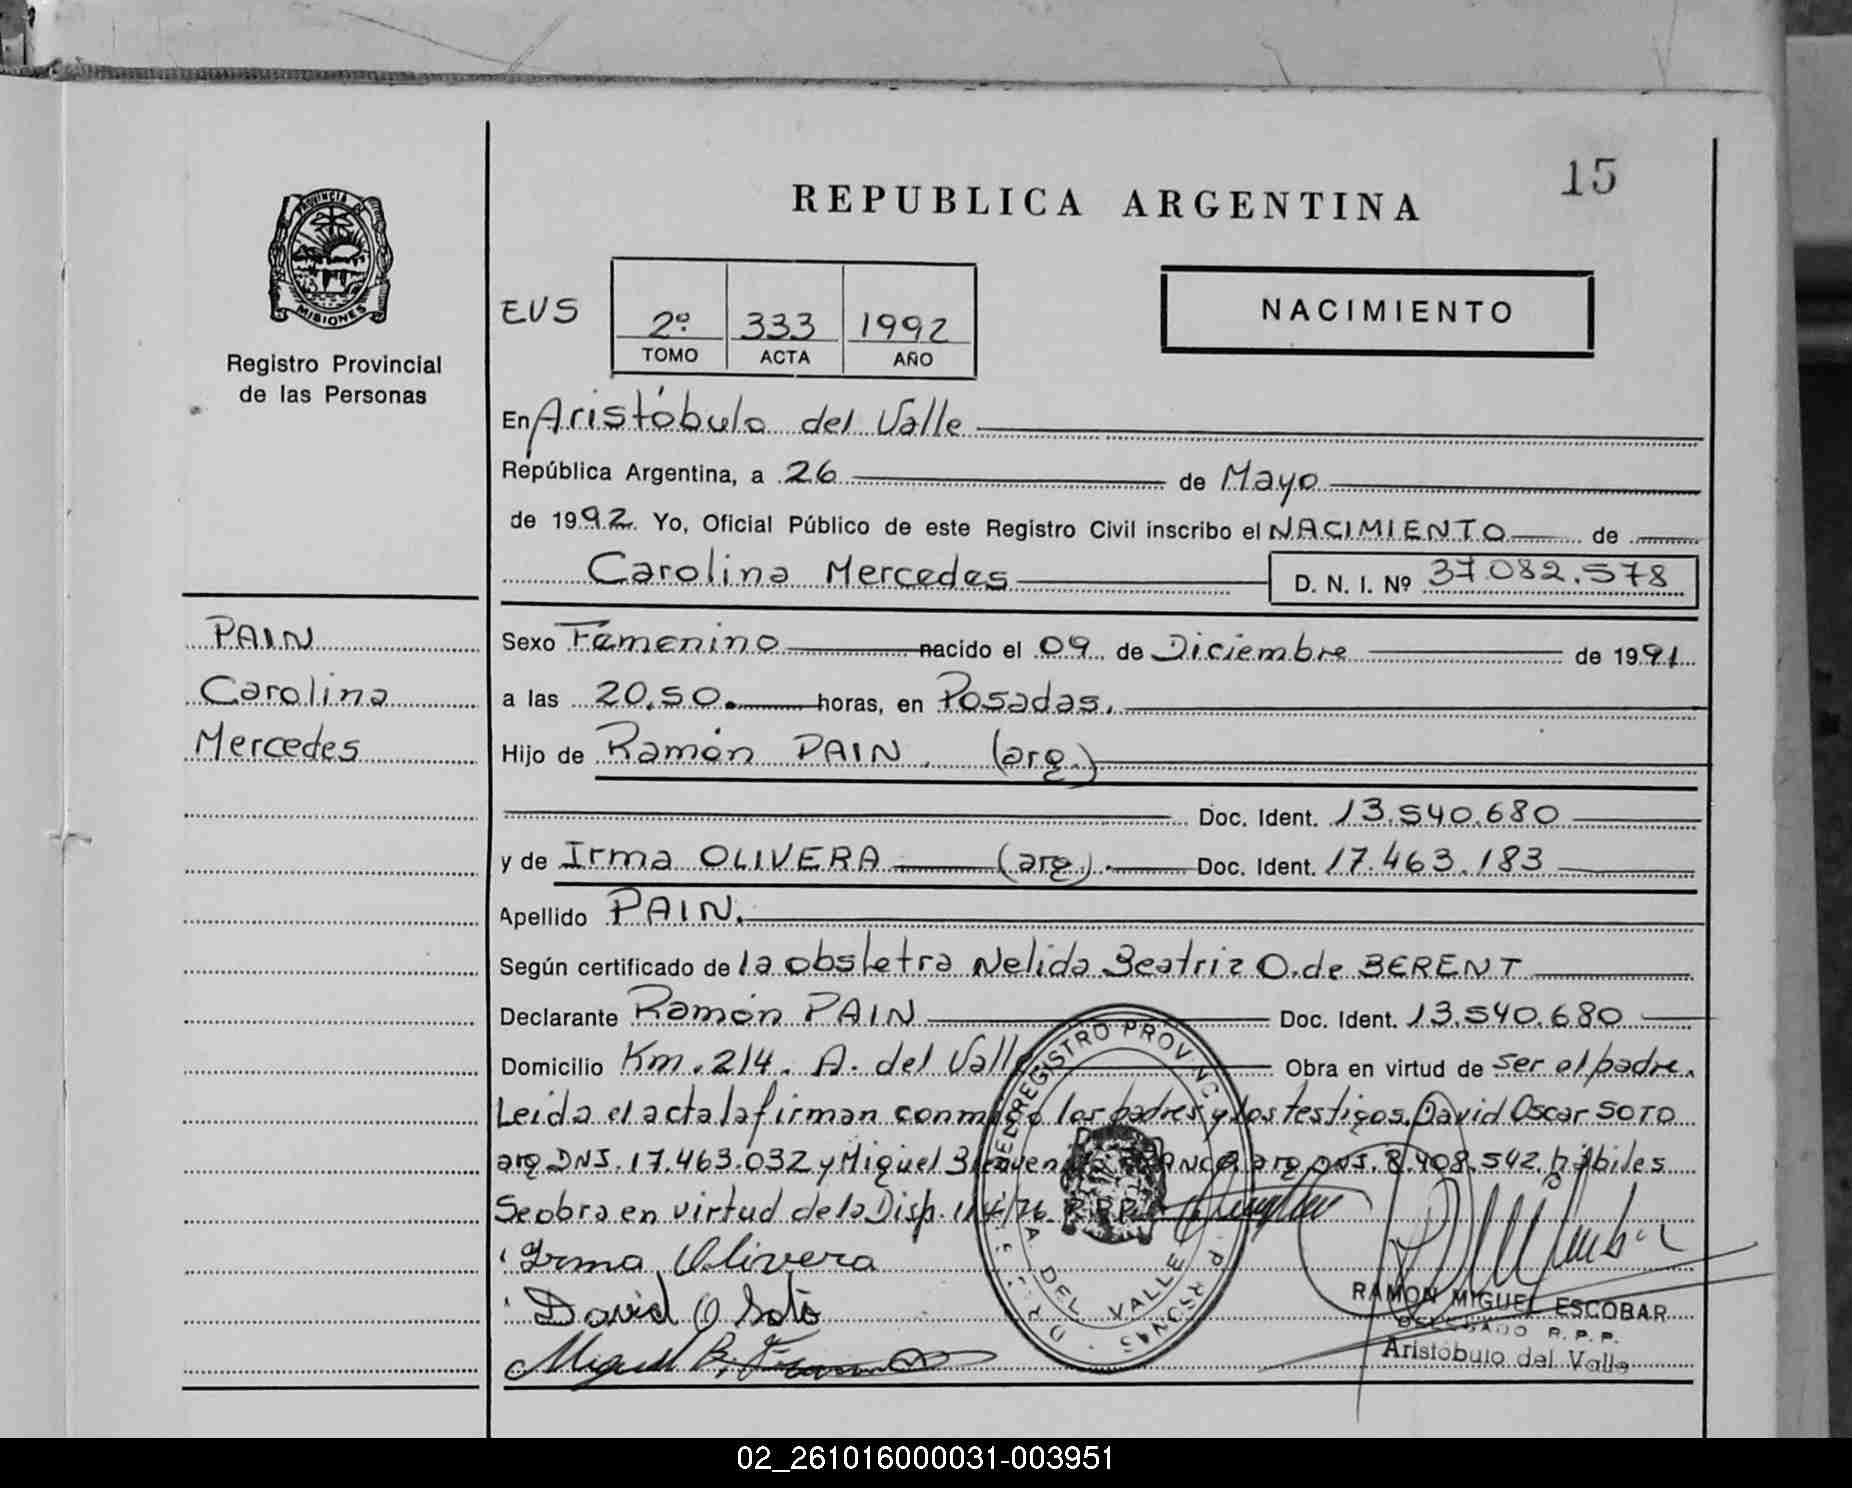 15
REPUBLICA ARGENTINA
PROVINCIA
MISIONES
Registro Provincial
de las Personas
EUS
2º 333 1992
TOMO ACTA AÑO
NACIMIENTO
En Aristóbulo del Valle
República Argentina, a 26 de Mayo
de 1992. Yo, Oficial Público de este Registro Civil inscribo el NACIMIENTO de
Carolina Mercedes D. N. I. Nº 37.082.578
PAIN
Carolina
Mercedes
Sexo Femenino nacido el 09 de Diciembre de 1991
a las 20,50. horas, en Posadas.
Hijo de Ramón PAIN. (arg.)
Doc. Ident. 13.540.680
y de Irma OLIVERA (arg). Doc. Ident. 17.463.183
Apellido PAIN.
Según certificado de la obstetra Nelida Beatriz O. de BERENT
Declarante Ramón PAIN Doc. Ident. 13.540.680
Domicilio Km. 214. A. del Valle Obra en virtud de ser el padre.
Leida el acta la firman conmigo los padres y los testigos David Oscar SOTO
arg DNI. 17.463.032 y Miguel arg DNI. 8.408.542. hábiles
Se obra en virtud de la Disp. 114/76 R.P.P.
Irma Olivera
David O Soto
Miguel B.
REGISTRO PROVINC
A. DEL VALLE
RAMON MIGUEL ESCOBAR
DELEGADO R. P. P.
Aristóbulo del Valle
02_261016000031-003951